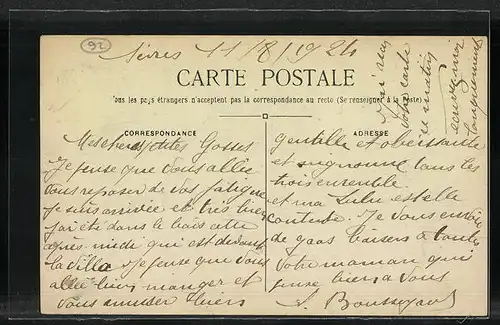 92
Sèvres 11/8/1924
CARTE POSTALE
Tous les pays étrangers n'acceptent pas la correspondance au recto (Se renseigner à la poste)
CORRESPONDANCE
Mes chères petites Gosses
Je pense que vous allez
vous reposer de vos fatigue
je suis arrivée et très bien
j'ai été dans le bois cette
après midi qui est devant
la villa Je pense que vous
allez bien manger et
vous amuser bien
ADRESSE
gentille et obeissante
et mignonne tous les
trois ensemble
et ma Lulu est elle
contente. Je vous envoie
de gros baisers a toutes
votre maman qui
pense bien a vous
J'ai reçu
votre carte
ce matin